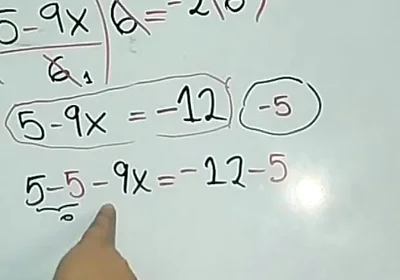 5-9x | 6 = -2(6)
6 1
5-9x = -12 -5
5-5-9x=-12-5
0